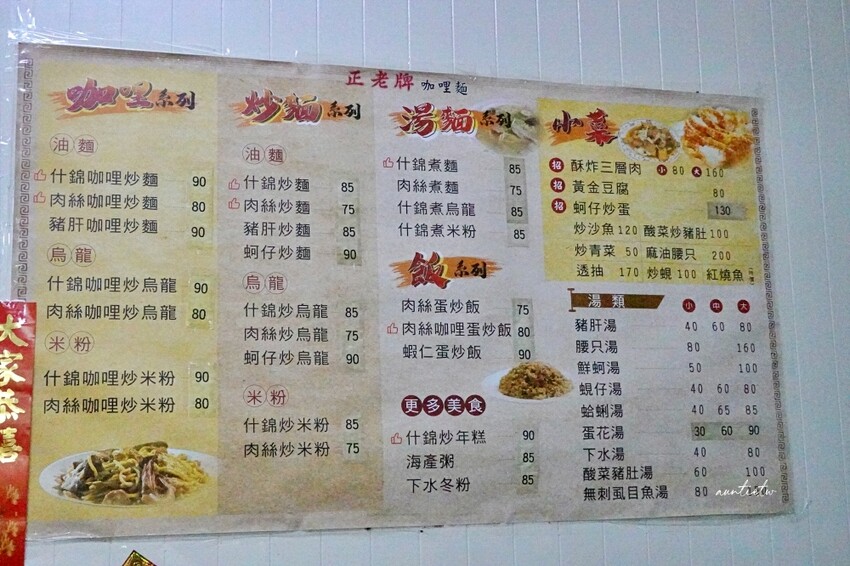 正老牌 咖哩麵
咖哩系列
油麵
什錦咖哩炒麵 90
肉絲咖哩炒麵 80
豬肝咖哩炒麵 90
烏龍
什錦咖哩炒烏龍 90
肉絲咖哩炒烏龍 80
米粉
什錦咖哩炒米粉 90
肉絲咖哩炒米粉 80
炒麵系列
油麵
什錦炒麵 85
肉絲炒麵 75
豬肝炒麵 85
蚵仔炒麵 90
烏龍
什錦炒烏龍 85
肉絲炒烏龍 75
蚵仔炒烏龍 90
米粉
什錦炒米粉 85
肉絲炒米粉 75
湯麵系列
什錦煮麵 85
肉絲煮麵 75
什錦煮烏龍 85
什錦煮米粉 85
飯系列
肉絲蛋炒飯 75
肉絲咖哩蛋炒飯 80
蝦仁蛋炒飯 90
更多美食
什錦炒年糕 90
海產粥 80
下水冬粉 85
小菜
招 酥炸三層肉 小 80 大 160
招 黃金豆腐 80
招 蚵仔炒蛋 130
炒沙魚 120 酸菜炒豬肚 100
炒青菜 50 麻油腰只 200
透抽 170 炒蜆 100 紅燒魚
湯類 小 中 大
豬肝湯 40 60 80
腰只湯 80 160
鮮蚵湯 50 100
蜆仔湯 40 60 80
蛤蜊湯 40 65 85
蛋花湯 30 60 90
下水湯 40 80
酸菜豬肚湯 60 100
無刺虱目魚湯 80
大家恭喜
auntietw